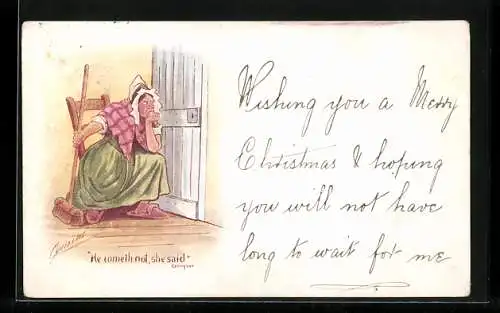 Wishing you a Merry
Christmas & hoping
you will not have
long to wait for me
"He cometh not, she said"
Tennyson